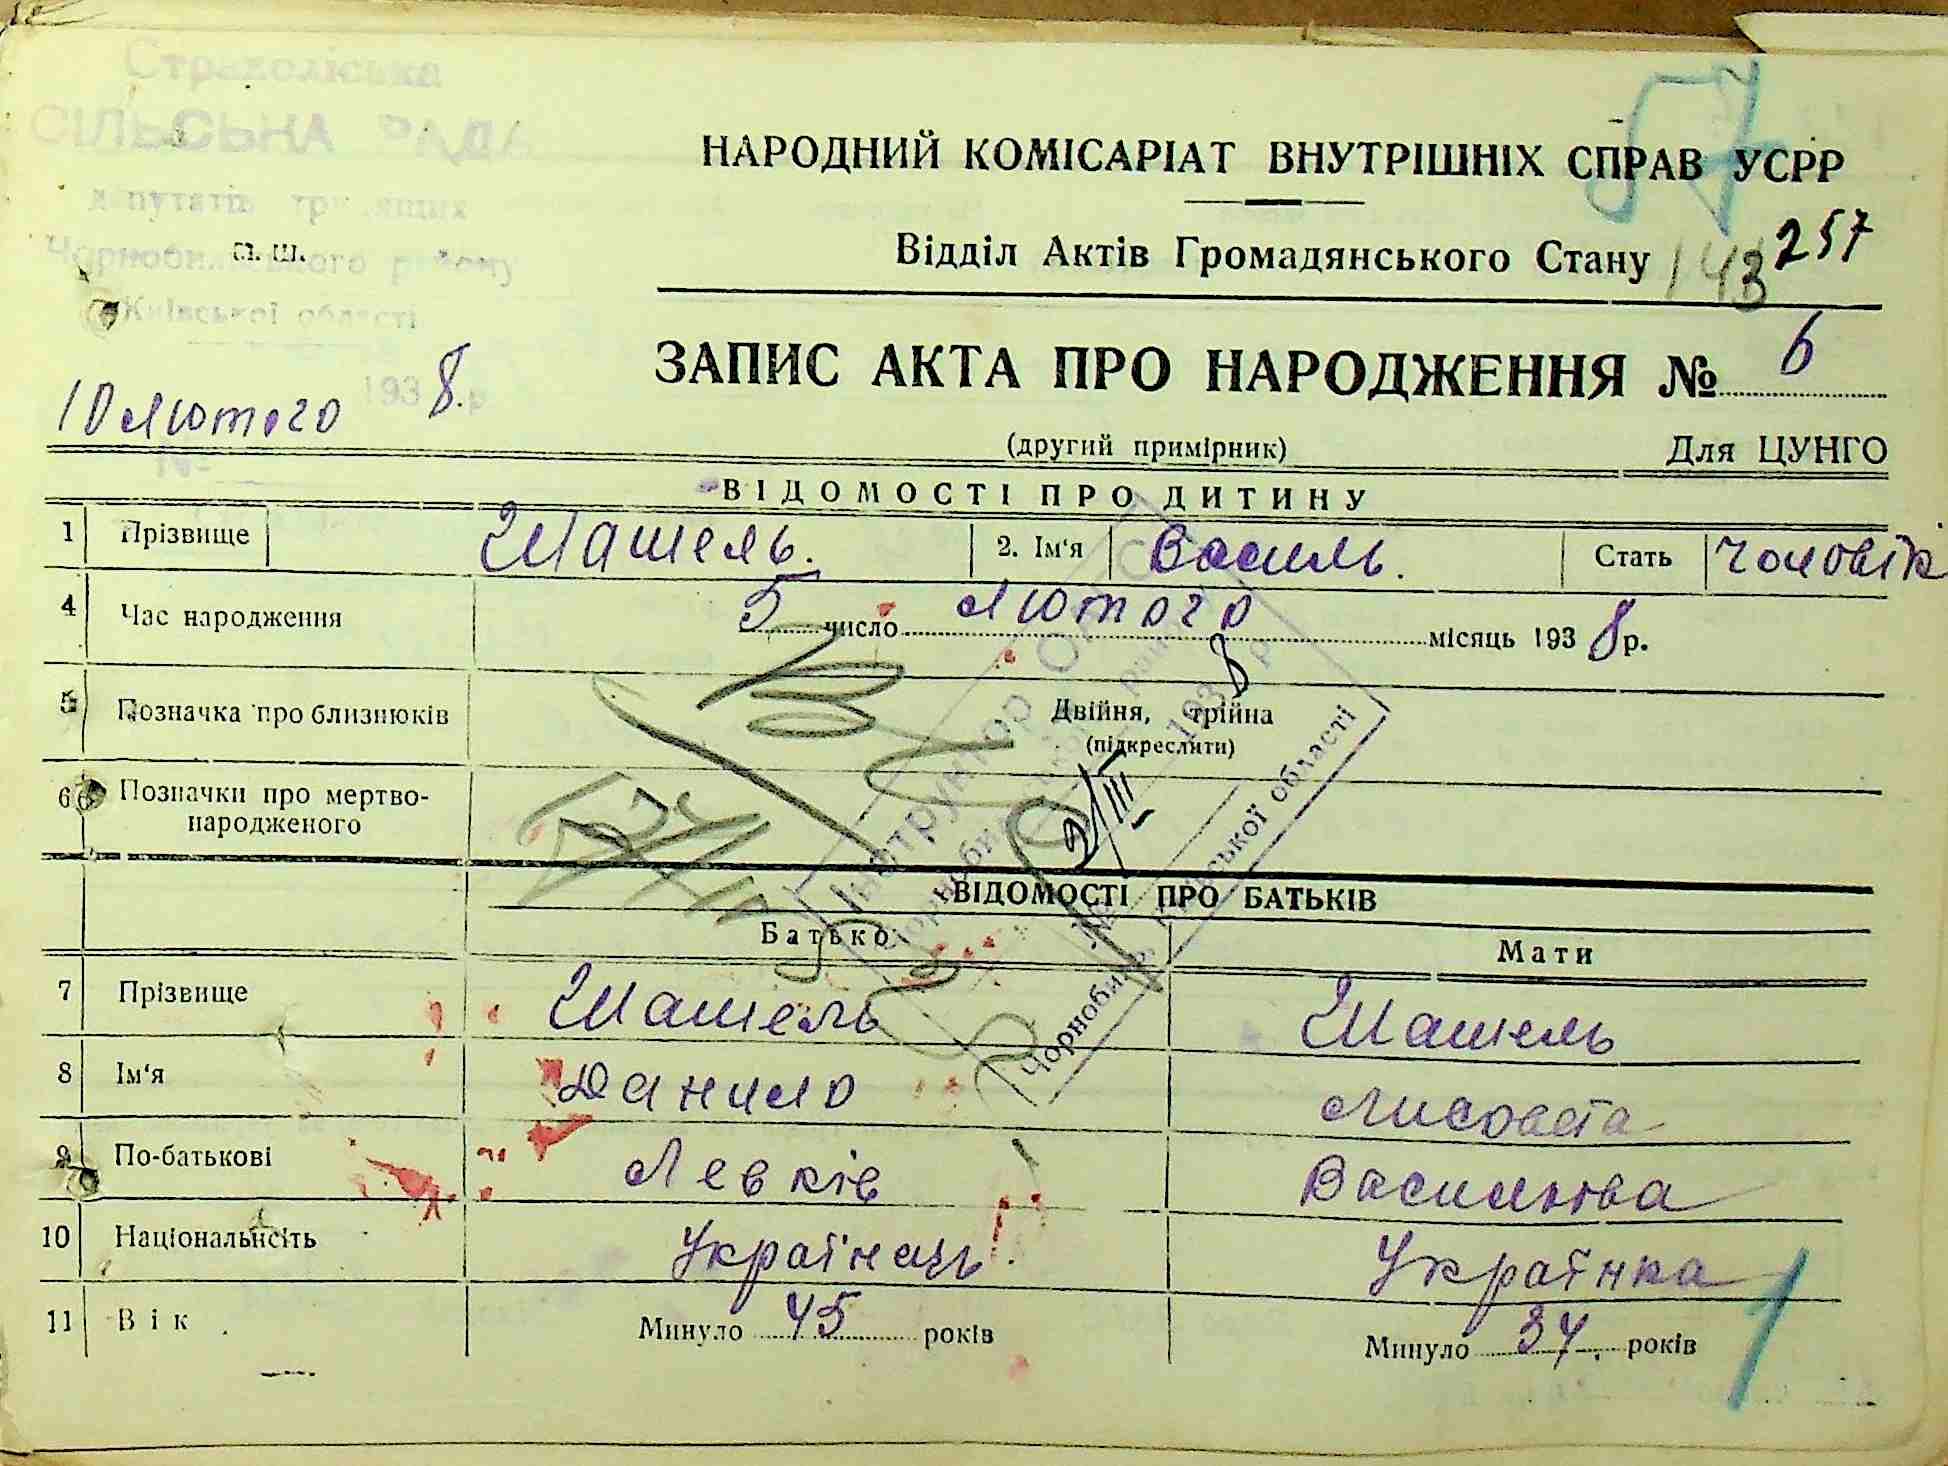 Страхоліська
СІЛЬСЬКА РАДА
депутатів трудящих
Чорнобильського району
Київської області
П. Ш.
10 лютого 1938 р.
№
57
НАРОДНИЙ КОМІСАРІАТ ВНУТРІШНІХ СПРАВ УСРР
Відділ Актів Громадянського Стану 143 257
ЗАПИС АКТА ПРО НАРОДЖЕННЯ № 6
(другий примірник) Для ЦУНГО
ВІДОМОСТІ ПРО ДИТИНУ
1 Прізвище Шашель. 2. Ім'я Василь. Стать Чоловік
4 Час народження 5 число лютого місяць 1938 р.
5 Позначка про близнюків Двійня, трійна
(підкреслити)
6 Позначки про мертво-
народженого
Інструктор ОАГС
Чорнобильського району
9/III 1938 р
№
Чорнобиль, Київської області
ВІДОМОСТІ ПРО БАТЬКІВ
Батько Мати
7 Прізвище Шашель Шашель
8 Ім'я Данило Лисовета
9 По-батькові Левків Василнова
10 Національність Українець. Українка
11 Вік Минуло 45 років Минуло 34. років
1